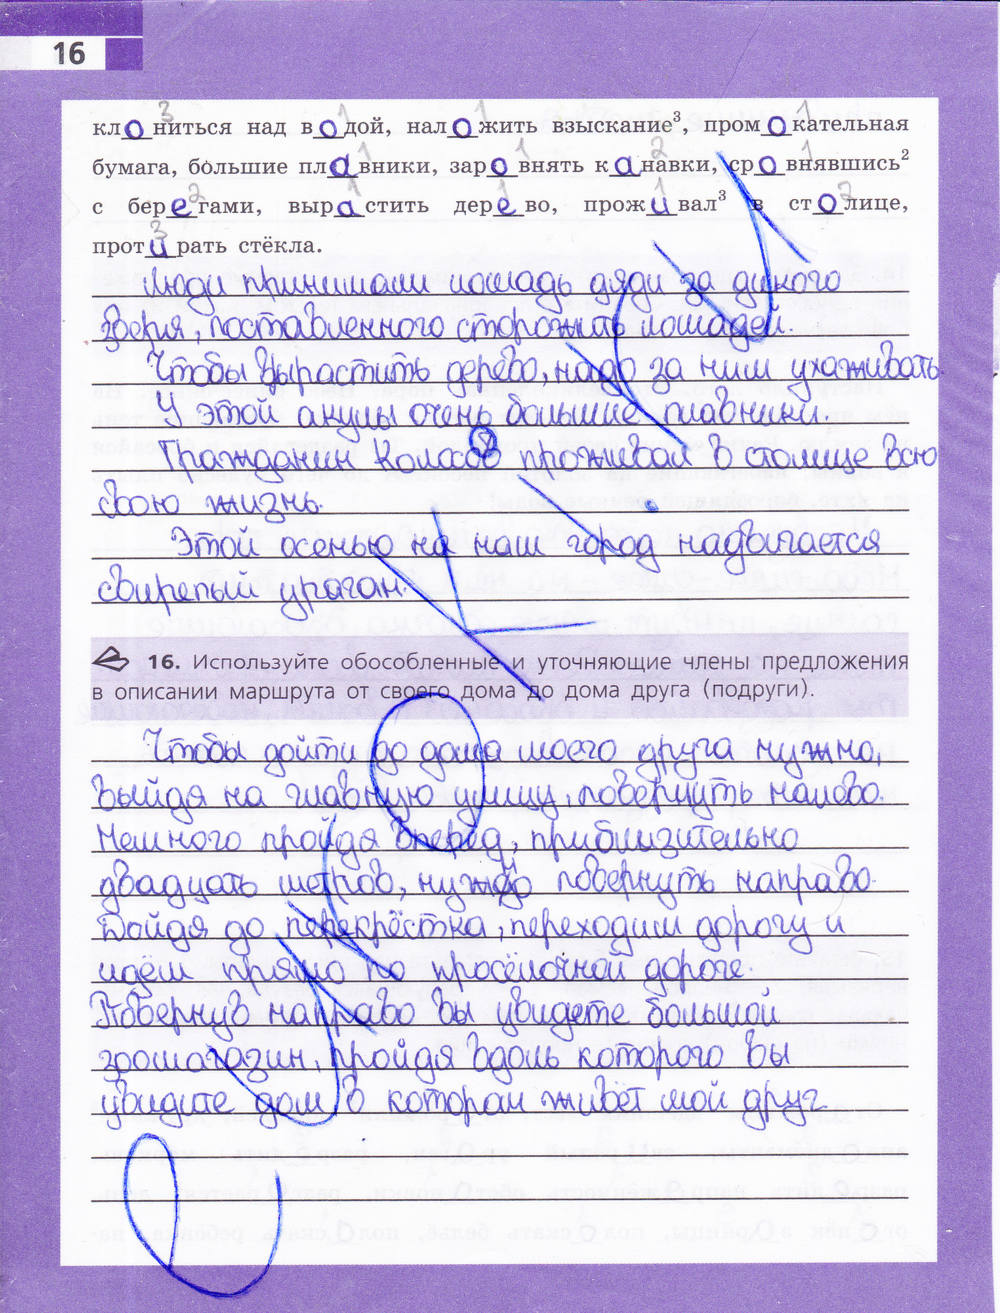 16
кл о ниться над в о дой, нал о жить взыскание³, пром о кательная
бумага, большие пл а вники, зар о внять к а навки, ср о внявшись²
с бер е гами, выр а стить дер е во, прож и вал³ в ст о лице,
прот и рать стёкла.
Люди принимали лошадь дяди за дикого
зверя, поставленного сторожить лошадей.
Чтобы вырастить дерево, надо за ним ухаживать.
У этой акулы очень большие плавники.
Гражданин Колосов проживал в столице всю
свою жизнь.
Этой осенью на наш город надвигается
свирепый ураган.
16. Используйте обособленные и уточняющие члены предложения
в описании маршрута от своего дома до дома друга (подруги).
Чтобы дойти до дома моего друга нужно,
выйдя на главную улицу, повернуть налево.
Немного пройдя вперёд, приблизительно
двадцать метров, нужно повернуть направо.
Дойдя до перекрёстка, переходим дорогу и
идём прямо по просёлочной дороге.
Повернув направо вы увидете большой
зоомагазин, пройдя вдоль которого вы
увидите дом в котором живёт мой друг